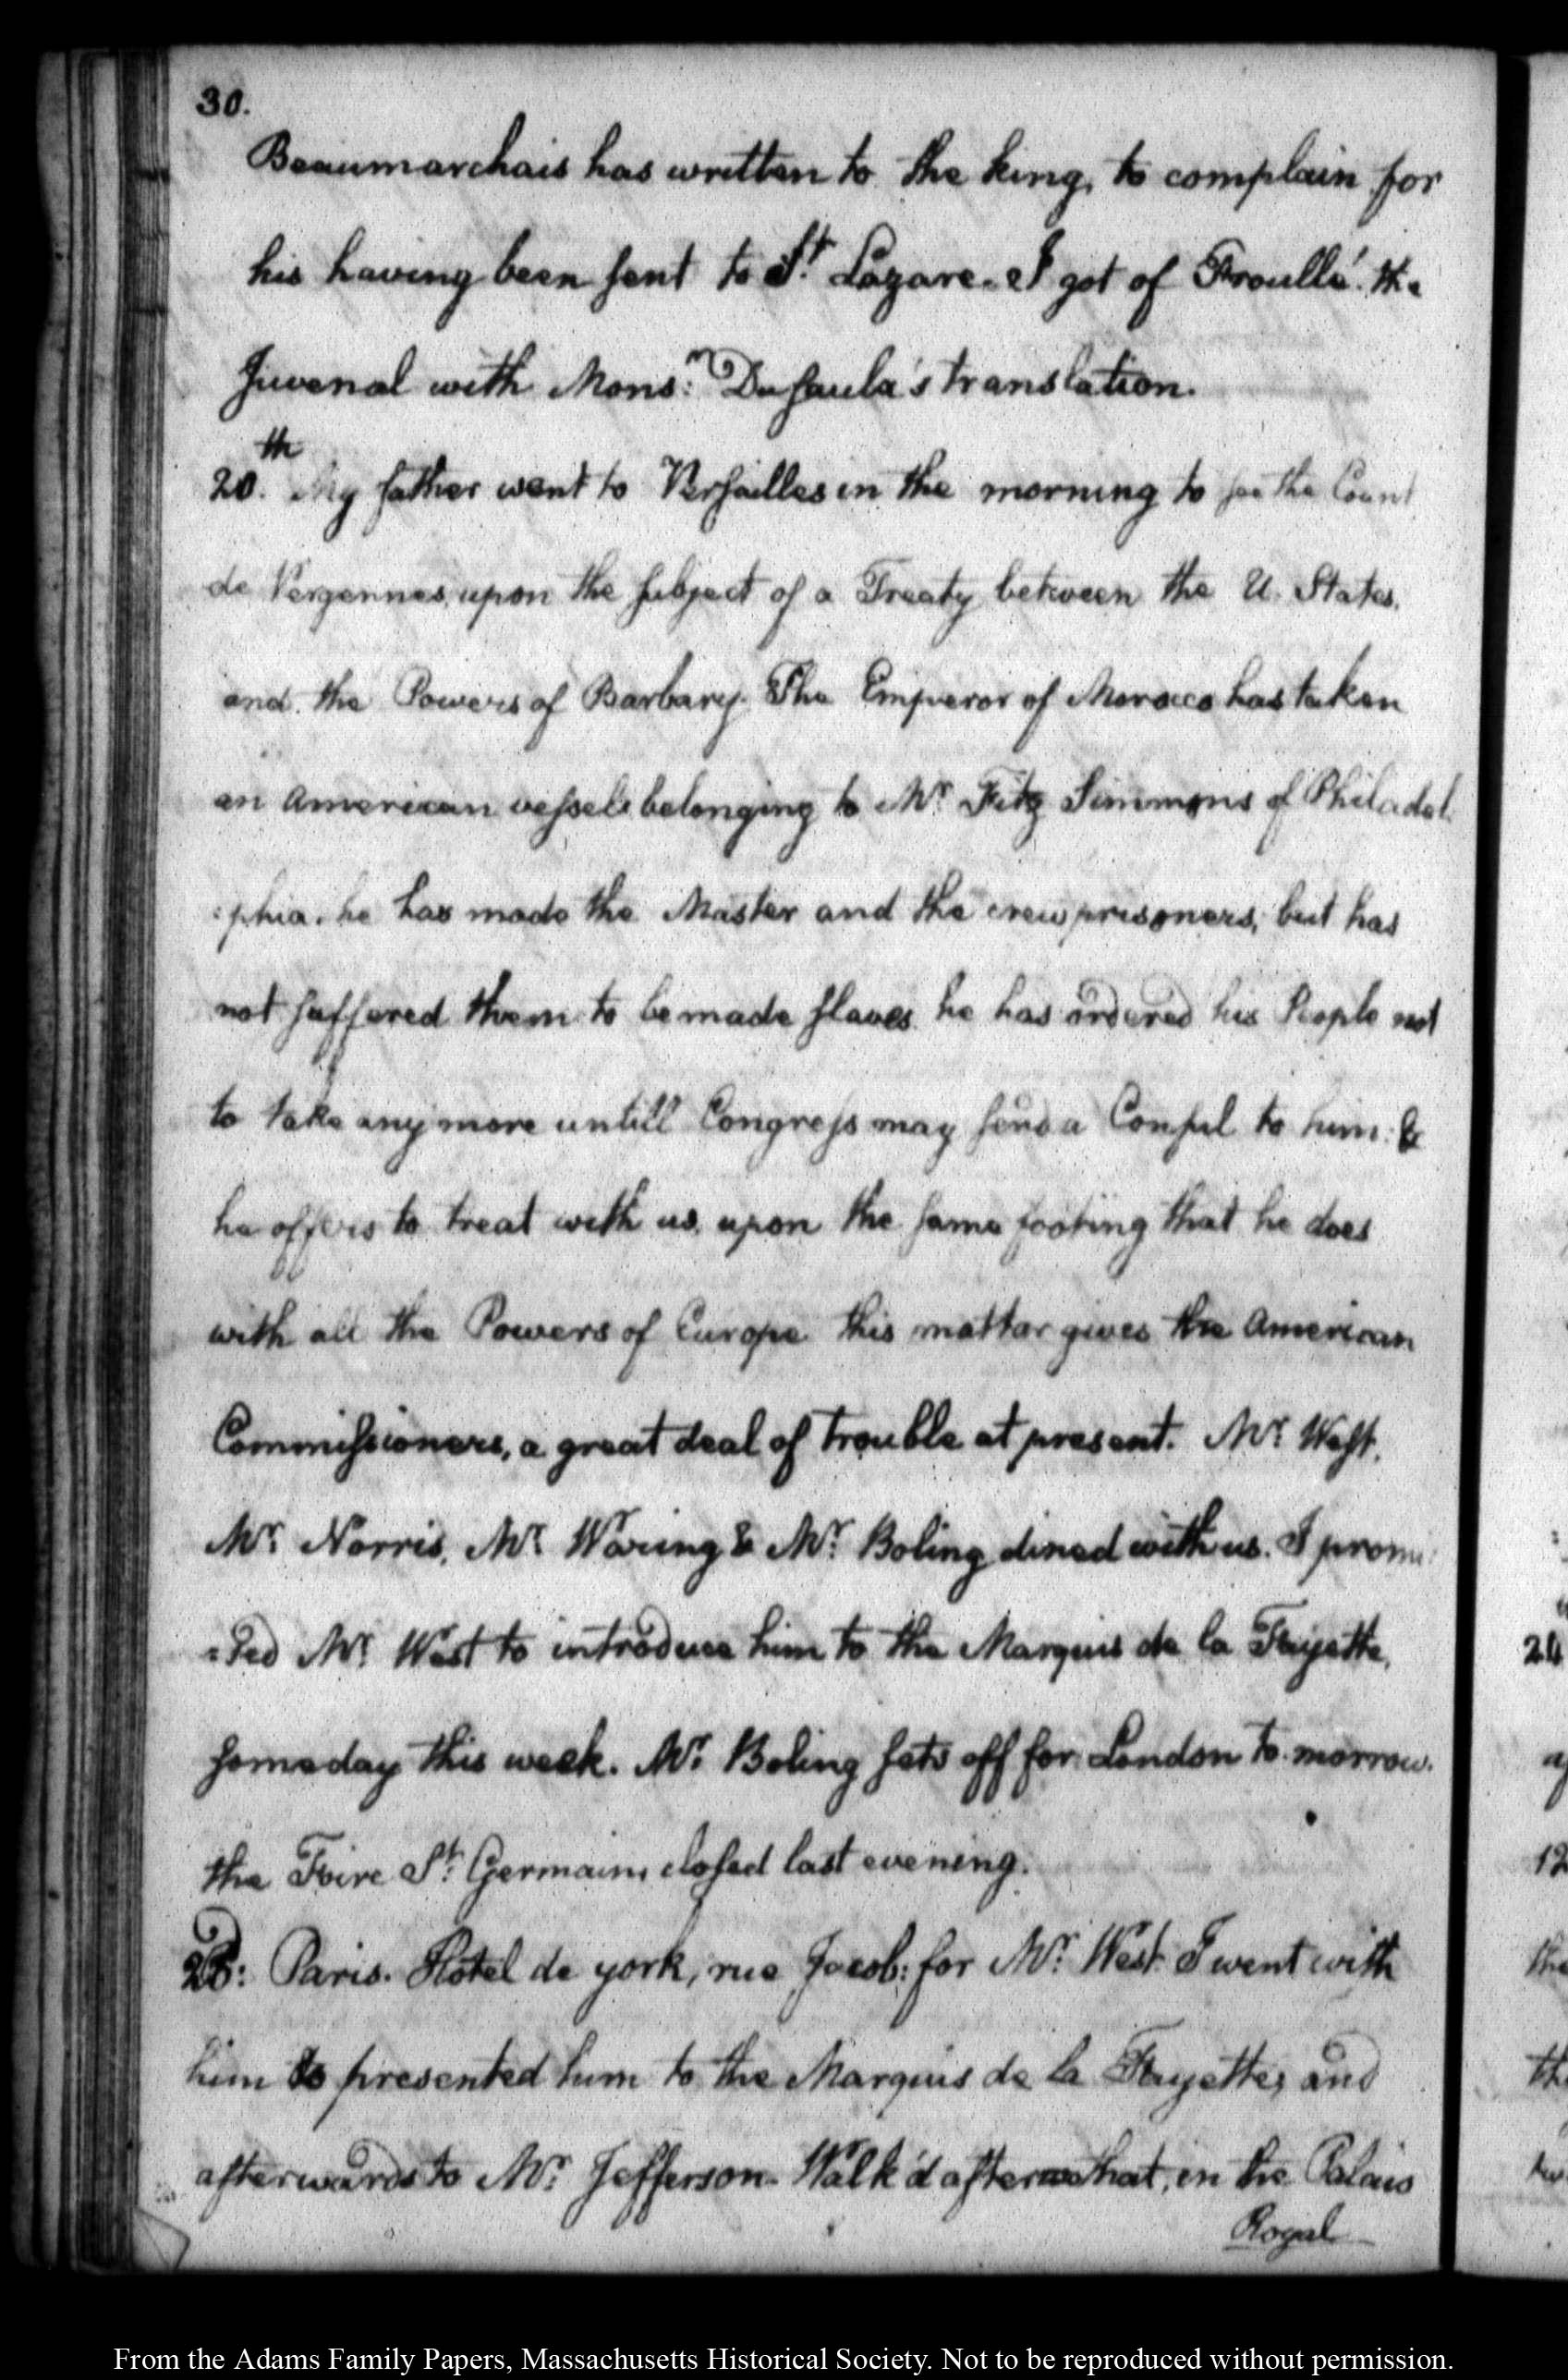 30.
Beaumarchais has written to the king, to complain for
his having been sent to St. Lazare. I got of Froullé. the
Juvenal with Monsr: Dusaula's translation.
20.th My father went to Versailles in the morning to see the Count
de Vergennes, upon the subject of a Treaty between the U. States,
and the Powers of Barbary. The Emperor of Morocco has taken
an American vessel belonging to Mr. Fitz Simmons of Philadel
:phia. he has made the Master and the crew prisoners, but has
not suffered them to be made slaves. he has ordered his People not
to take any more untill Congress may send a Consul to him: &
he offers to treat with us, upon the same footing that he does
with all the Powers of Europe this matter gives the American
Commissioners, a great deal of trouble at present. Mr. West.
Mr. Norris, Mr. Waring & Mr. Boling dined with us. I promi
:sed Mr. West to introduce him to the Marquis de la Fayette,
some day this week. Mr. Boling sets off for London to-morrow.
the Foire St. Germain, closed last evening.
Paris. Hotel de york, rue Jacob: for Mr. West I went with
him presented him to the Marquis de la Fayette, and
afterwards to Mr. Jefferson. Walk'd after that, in the Palais
Royal
24
12
the
th
From the Adams Family Papers, Massachusetts Historical Society. Not to be reproduced without permission.